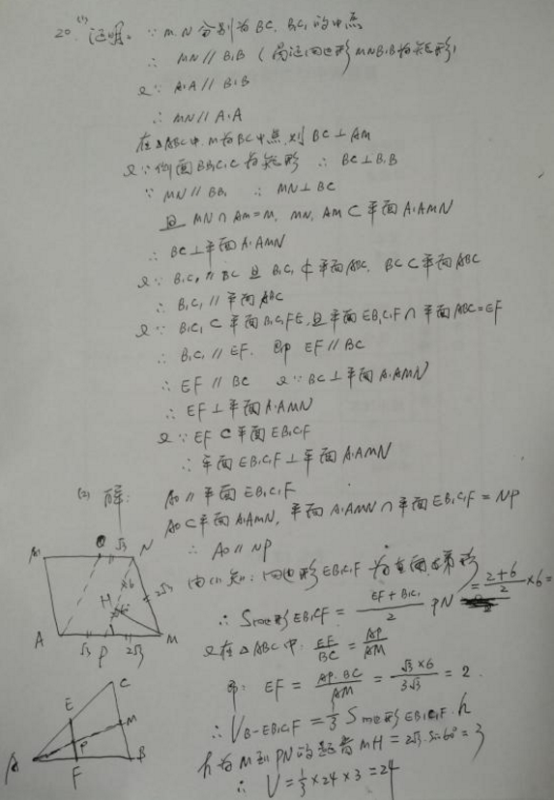 20. (1) 证明。∵ M.N分别为BC, B₁C₁的中点
∴ MN // B₁B
又∵ A₁A // B₁B
∴ MN // A₁A
在△ABC中. M为BC中点, 则 BC⊥AM
又∵ 侧面BB₁C₁C为矩形 ∴ BC⊥B₁B
∵ MN // BB₁ ∴ MN⊥BC
且 MN∩AM=M. MN, AM⊂平面A₁AMN
∴ BC⊥平面A₁AMN
又∵ B₁C₁ // BC 且 B₁C₁⊄平面ABC, BC⊂平面ABC
∴ B₁C₁ // 平面ABC
又∵ B₁C₁⊂平面B₁C₁FE, 且平面EB₁C₁F∩平面ABC=EF
∴ B₁C₁ // EF. 即 EF // BC
∴ EF // BC 又∵ BC⊥平面A₁AMN
∴ EF⊥平面A₁AMN
又∵ EF⊂平面EB₁C₁F
∴ 平面EB₁C₁F⊥平面A₁AMN
(2) 解: AO // 平面EB₁C₁F
AO⊂平面A₁AMN, 平面A₁AMN∩平面EB₁C₁F=NP
∴ AO // NP
由(1)知: 四边形EB₁C₁F为
∴ S四边形EB₁C₁F = (EF+B₁C₁)/2 PN = (2+6)/2 ×6=
又在△ABC中. EF/BC = AP/AM
即: EF = AP·BC/AM = √3×6/3√3 = 2.
∴ V B-EB₁C₁F = 1/3 S四边形EB₁C₁F·h
h为M到PN的距离 MH=2√3·sin60°=3
∴ V = 1/3×24×3=24
A₁ O √3 N
H ×6 2√3
60°
A √3 P 2√3 M
C
E M
P
A F B